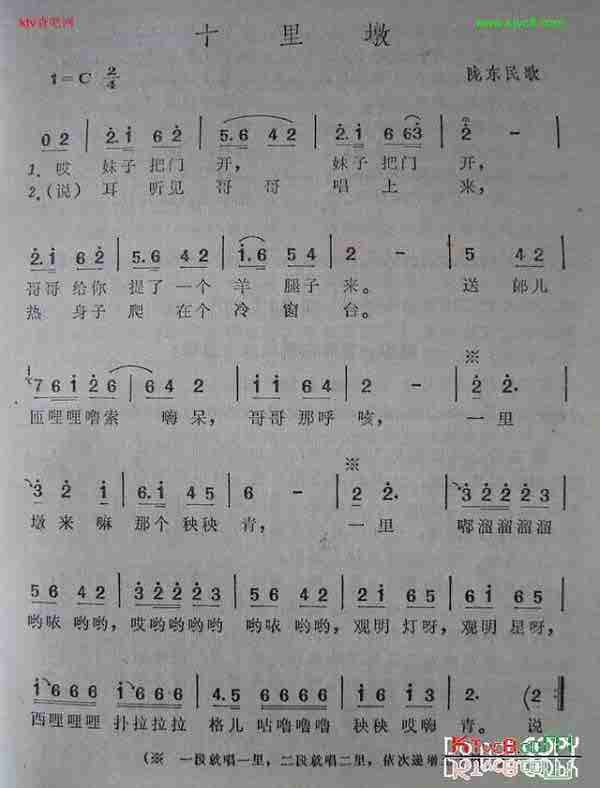 ktv查吧网
www.ktvc8.com
十里墩
1=C 2/4 陇东民歌
0 2 | 2. 1 6 2 | 5. 6 4 2 | 2. 1 6 63 | 2 - |
1. 哎 妹子把门 开, 妹子把门 开,
2.(说) 耳 听见 哥 哥 唱 上 来,
2. 1 6 2 | 5. 6 4 2 | 1. 6 5 4 | 2 - | 5 4 2 |
哥哥给你 提了一个 羊 腿子 来。 送 郎儿
热 身子 爬 在个 冷 窗 台。
※
7 6 1 2 6 | 6 4 2 | 1 1 6 4 | 5 - | 2 2. |
匝哩哩噜索 嗨 呆, 哥哥那呼 咳, 一里
※
3 2 1 | 6. 1 4 5 | 6 - | 2 2. | 3 2 2 2 3 |
墩来嘛 那个秧秧 青, 一里 嘟溜溜溜溜
5 6 4 2 | 3 2 2 2 | 5 6 4 2 | 5 6 4 2 | 6 1 6 5 |
哟哝 哟哟, 哎哟哟哟哟 哟哝 哟哟, 观明 灯呀, 观明 星呀,
1 6 6 6 1 6 6 6 | 4. 5 6 6 6 6 | 4 5 3 1 | 2. (2 :|
西哩哩哩 扑拉拉拉 格儿 咕噜噜噜 秧秧 哎嗨 青。 说
(※ 一段就唱一里, 二段就唱二里, 依次递增